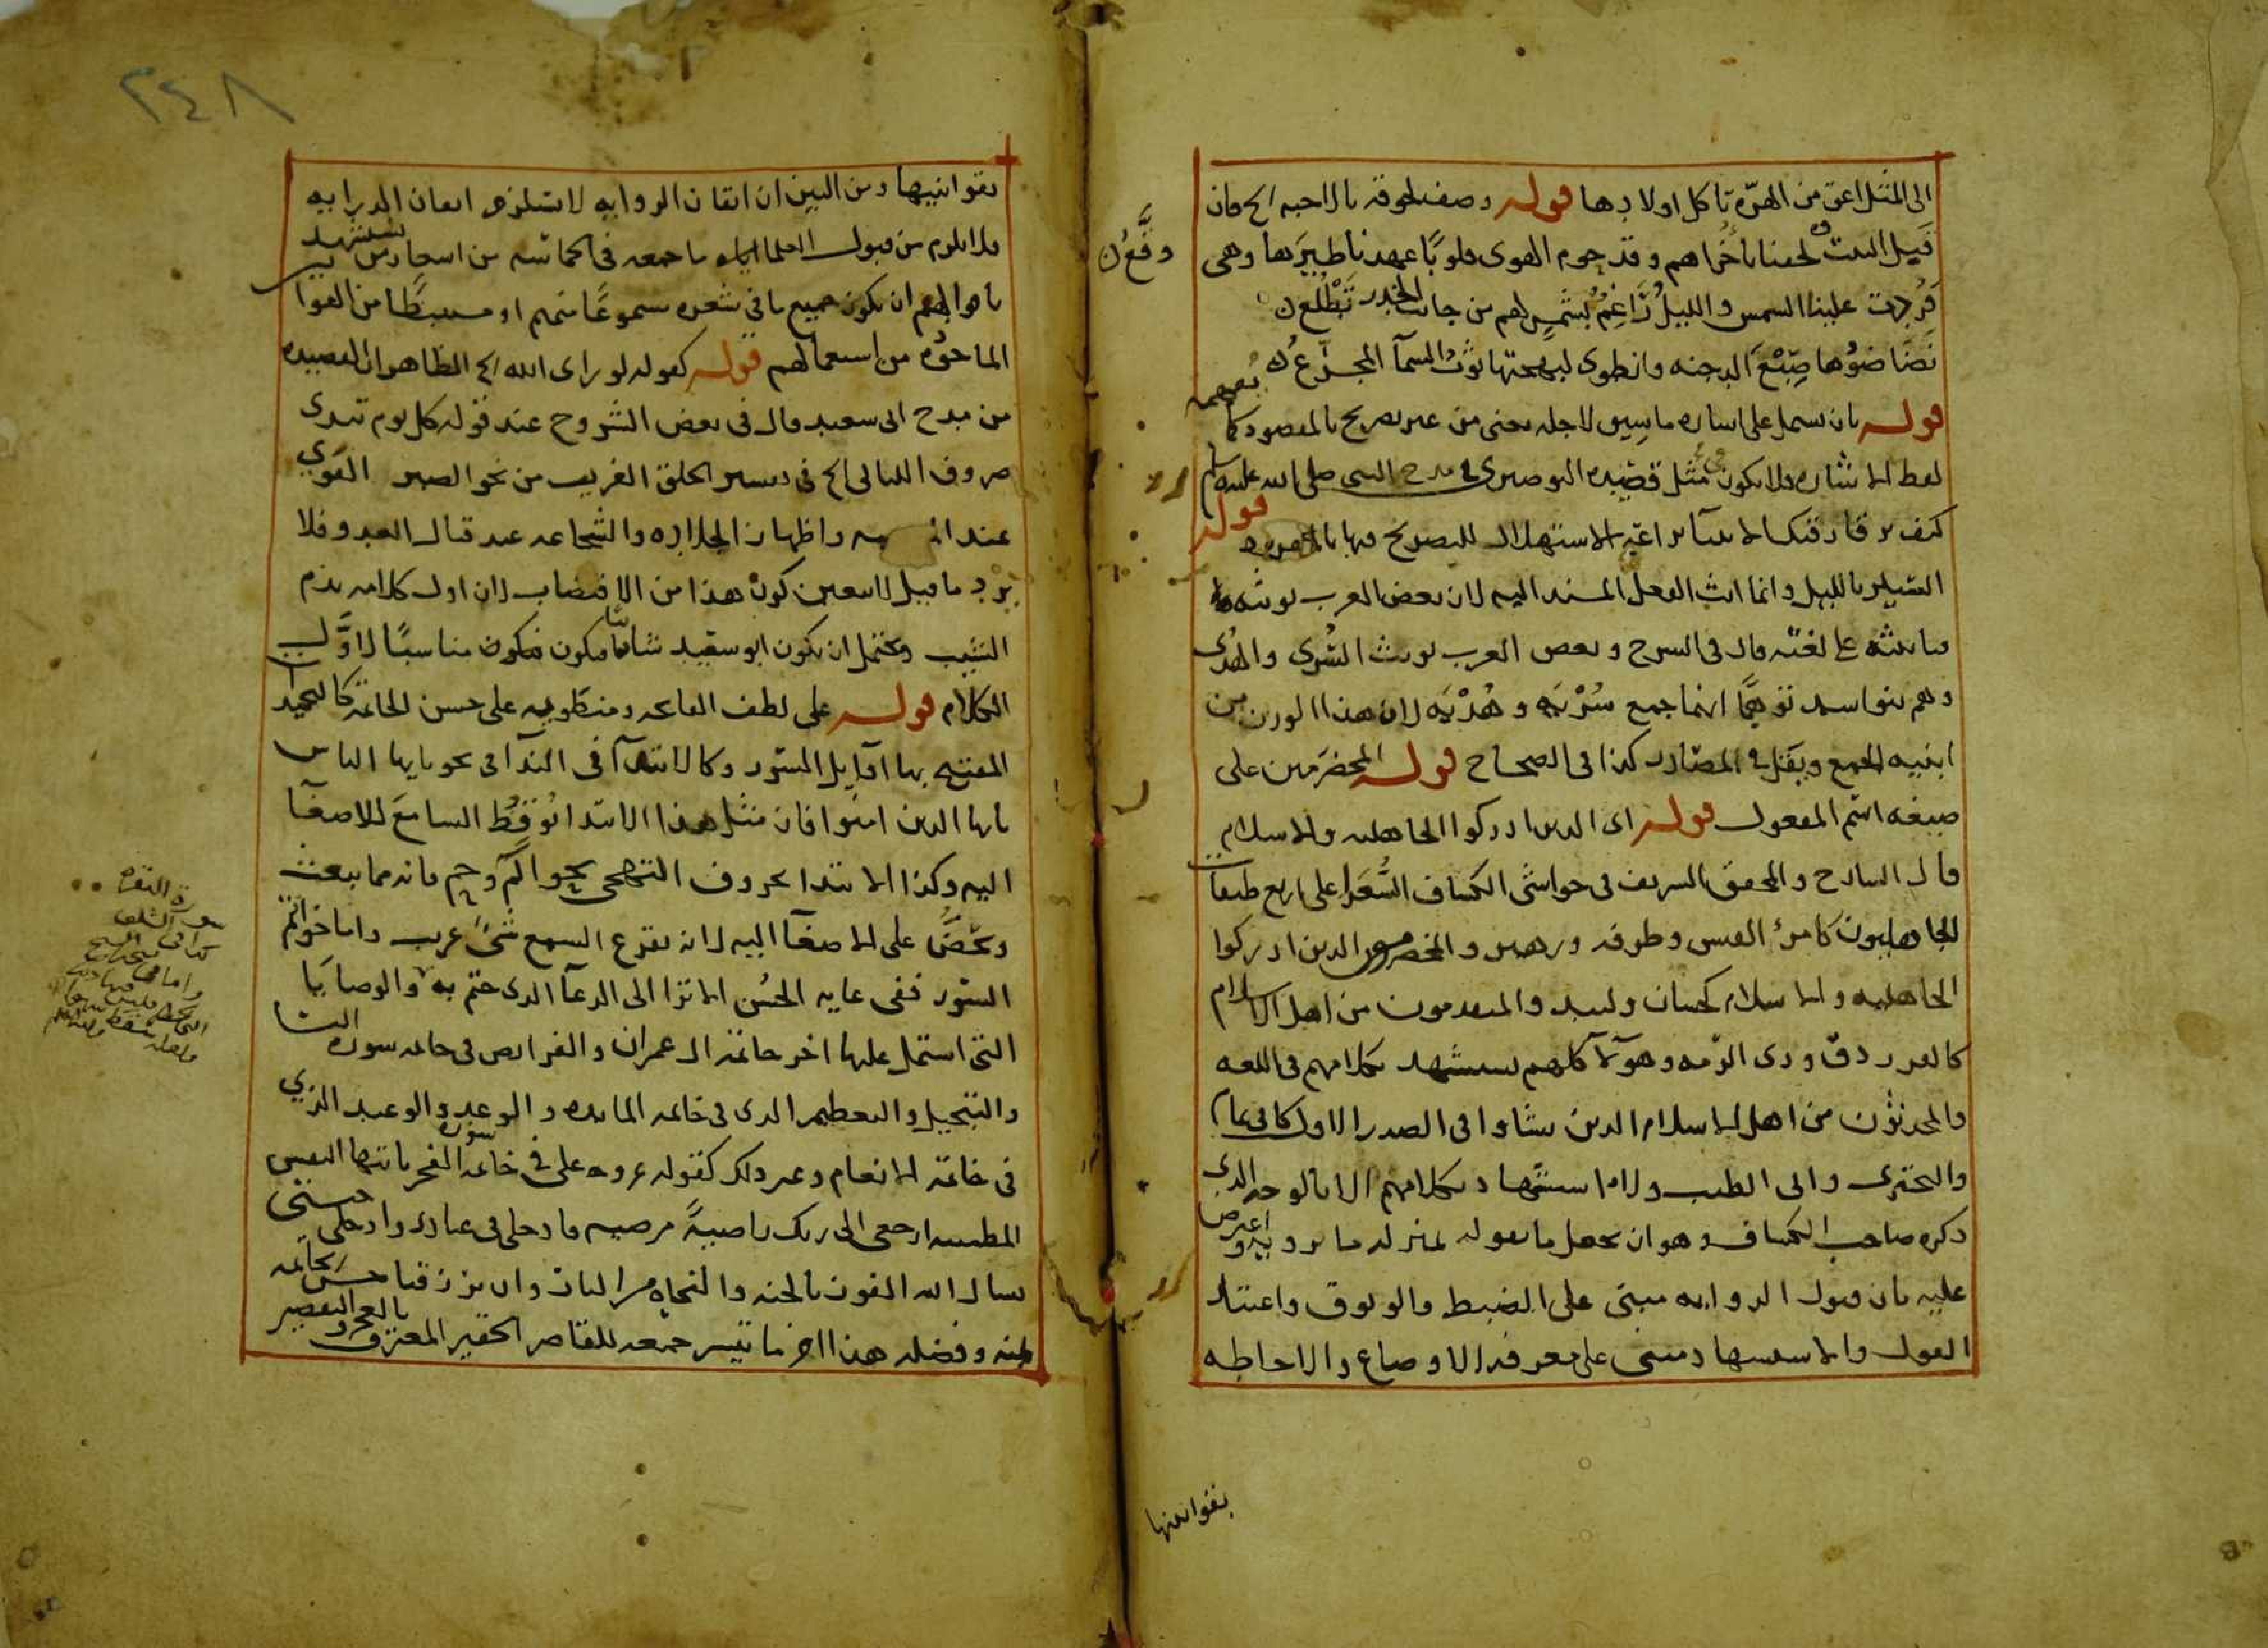 الى المثل اعق من الهرّة تاكل اولادها قوله وصف لحوقه بالاحبه الخ فان
قبل البيت لحقنا باخراهم وقد حوم الهوى قلوبًا عهدنا طيرها وهي
وقَّعُ ن
فردت علينا الشمس والليل راغم بشمس لهم من جانب الخدر تطلع ن
نضا ضوها صبغ الدجنه وانطوى لبهجتها ثوب السمآ المجزع ن
قوله بان يشتمل على اشاره ما سيق لاجله يعنى من غير تصريح بالمقصود كما يفهمه
لفظ الاشاره فلا يكون مثل قصيده البوصيرى فى مدح النبى صلى الله عليه وسلم
كيف ترقا رقيك الانبيآ براعة الاستهلال للتصريح فيها بالمقصود قوله
بالليل وانما انث الفعل المسند اليه لان بعض العرب يونثه
فانيثه على لغته قال فى الشرح وبعض العرب يونث السُّرى والهدى
وهم بنو اسد توهمًا انما جمع سُرْيَه وهُدْيَه لان هذا الوزن من
ابنيه الجمع ويقل فى المصادر كذا فى الصحاح قوله المخضرمين على
صيغه اسم المفعول قوله اى الذين ادركوا الجاهليه والاسلام
قال الشارح والمحقق الشريف فى حواشى الكشاف الشعرا على اربع طبقات
الجاهليون كامرئ القيس وطرفه وزهير والمخضرمون الذين ادركوا
الجاهليه والاسلام كحسان ولبيد والمتقدمون من اهل الاسلام
كالفرزدق وذى الرّمه وهولآ كلهم يستشهد بكلامهم فى اللغه
والمحدثون من اهل الاسلام الذين نشاوا فى الصدر الاول كابى تمام
والبحترى وابى الطيب ولا استشهاد بكلامهم الا بالوجه الذى
ذكره صاحب الكشاف وهو ان يجعل ما يقوله بمنزله ما يرويه واعترض
عليه بان قبول الروايه مبنى على الضبط والوثوق واعتبار
القول والاستشهاد مبنى على معرفه الاوضاع والاحاطه
بقوانينها
٢٤٨
بقوانينها ومن البين ان اتقان الروايه لا يستلزم اتقان الدرايه
فلا يلزم من قبول العلما اياه ما جمعه فى الحماسه من اشعار من يستشهد
باقوالهم ان يكون جميع ما فى شعره مسموعًا منهم او مستنبطًا من القوانين
الماخوذه من استعمالهم قوله كقوله لو راى الله الخ الظاهر ان القصيده
من مدح ابى سعيد قال فى بعض الشروح عند قوله كل يوم تبدى
صروف الليالى الخ فى تفسير الخلق الغريب من نحو الصبر القوي
عند واظهار الجلاده والشجاعه عند قتال العدو فلا
يرد ما قيل لا يتعين كون هذا من الاقتضاب لان اول كلامه بذم
الشيب ويحتمل ان يكون ابو سعيد شابا فيكون مناسبًا لاوّل
الكلام قوله على لطف الفاتحه ومنطويه على حسن الخاتمة كالتحميد
المفتتح بها اوايل السّور وكالابتدآ فى الندآ فى نحو يايها الناس
يايها الذين امنوا فان مثل هذا الابتدا يوقظ السامع للاصغآ
اليه وكذا الابتدا بحروف التهجى نحو الٓمٓ وحم فانه مما يبعث
ويحضّ على الاصغآ اليه لانه يقرع السمع شئ غريب واما خواتم
السّور ففى غايه الحسن الا ترا الى الدعآ الذى ختم به والوصايا
التى اشتمل عليها اخر خاتمة ال عمران والفرايض فى خاتمه سوره النسا
والتبجيل والتعظيم الذى فى خاتمه المايده والوعد والوعيد الذي
فى خاتمة الانعام وغير ذلك كقوله عز وعلى فى خاتمه سوره الفجر يايتها النفس
المطمينه ارجعى الى ربك راضيةً مرضيه فادخلى فى عبادى وادخلى جنتى
نسال الله الفوز بالجنه والنجاه من النار وان يرزقنا حسن الخاتمه
بمنه وفضله هذا اخر ما تيسر جمعه للقاصر الحقير المعترف بالعجز والتقصير